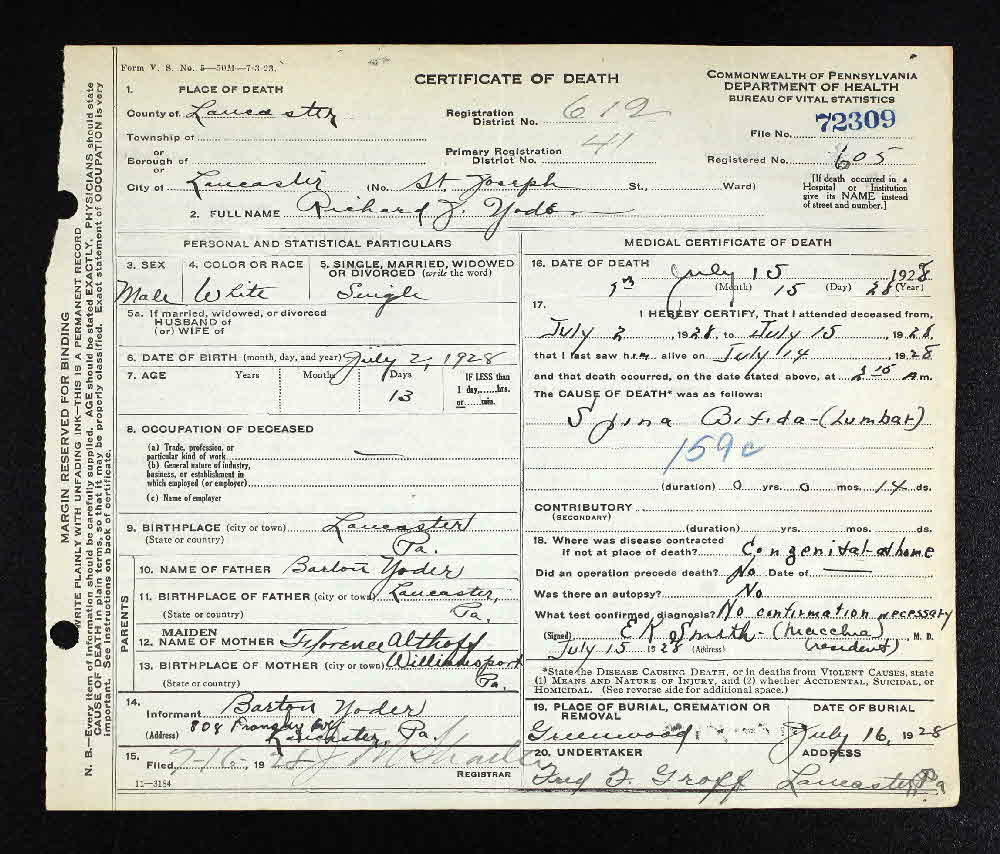 Form V. S. No. 5—50M—7-3-23.
CERTIFICATE OF DEATH
COMMONWEALTH OF PENNSYLVANIA
DEPARTMENT OF HEALTH
BUREAU OF VITAL STATISTICS
1. PLACE OF DEATH
County of Lancaster
Registration District No. 612
File No. 72309
Township of
or
Borough of
Primary Registration District No. 41
Registered No. 605
or
City of Lancaster (No. St. Joseph St., Ward)
[If death occurred in a Hospital or Institution give its NAME instead of street and number.]
2. FULL NAME Richard J. Yoder
PERSONAL AND STATISTICAL PARTICULARS
3. SEX
Male
4. COLOR OR RACE
White
5. SINGLE, MARRIED, WIDOWED OR DIVORCED (write the word)
Single
5a. If married, widowed, or divorced
HUSBAND of
(or) WIFE of
6. DATE OF BIRTH (month, day, and year) July 2, 1928
7. AGE Years Months Days IF LESS than
13
1 day,......hrs.
or......min.
8. OCCUPATION OF DECEASED
(a) Trade, profession, or
particular kind of work —
(b) General nature of industry,
business, or establishment in
which employed (or employer)
(c) Name of employer
9. BIRTHPLACE (city or town) Lancaster
(State or country) Pa.
PARENTS
10. NAME OF FATHER Barton Yoder
11. BIRTHPLACE OF FATHER (city or town) Lancaster,
(State or country) Pa.
12. MAIDEN NAME OF MOTHER Florence Althoff
13. BIRTHPLACE OF MOTHER (city or town) Williamsport
(State or country) Pa.
14.
Informant Barton Yoder
(Address) 808
Lancaster, Pa.
15.
Filed 7-16-, 1928 J M
REGISTRAR
11—3184
MEDICAL CERTIFICATE OF DEATH
16. DATE OF DEATH July 15 1928
(Month) 15 (Day) 28 (Year)
17. I HEREBY CERTIFY, That I attended deceased from,
July 2, 1928, to July 15, 1928,
that I last saw him alive on July 14, 1928
and that death occurred, on the date stated above, at 2 15 A m.
The CAUSE OF DEATH* was as follows:
Spina Bifida-(Lumbar)
159c
(duration) 0 yrs. 0 mos. 14 ds.
CONTRIBUTORY
(SECONDARY)
(duration) yrs. mos. ds.
18. Where was disease contracted
if not at place of death? Congenital-at home
Did an operation precede death? No Date of —
Was there an autopsy? No
What test confirmed diagnosis? No confirmation necessary
(Signed) E K Smith - (Macchia), M. D.
July 15 1928 (Address) (resident)
*State the DISEASE CAUSING DEATH, or in deaths from VIOLENT CAUSES, state
(1) MEANS AND NATURE OF INJURY, and (2) whether ACCIDENTAL, SUICIDAL, or
HOMICIDAL. (See reverse side for additional space.)
19. PLACE OF BURIAL, CREMATION OR REMOVAL
Greenwood
DATE OF BURIAL
July 16, 1928
20. UNDERTAKER
Fred F. Groff
ADDRESS
Lancaster, Pa
MARGIN RESERVED FOR BINDING
WRITE PLAINLY WITH UNFADING INK—THIS IS A PERMANENT RECORD
N. B.—Every item of information should be carefully supplied. AGE should be stated EXACTLY. PHYSICIANS should state
CAUSE OF DEATH in plain terms, so that it may be properly classified. Exact statement of OCCUPATION is very
important. See instructions on back of certificate.